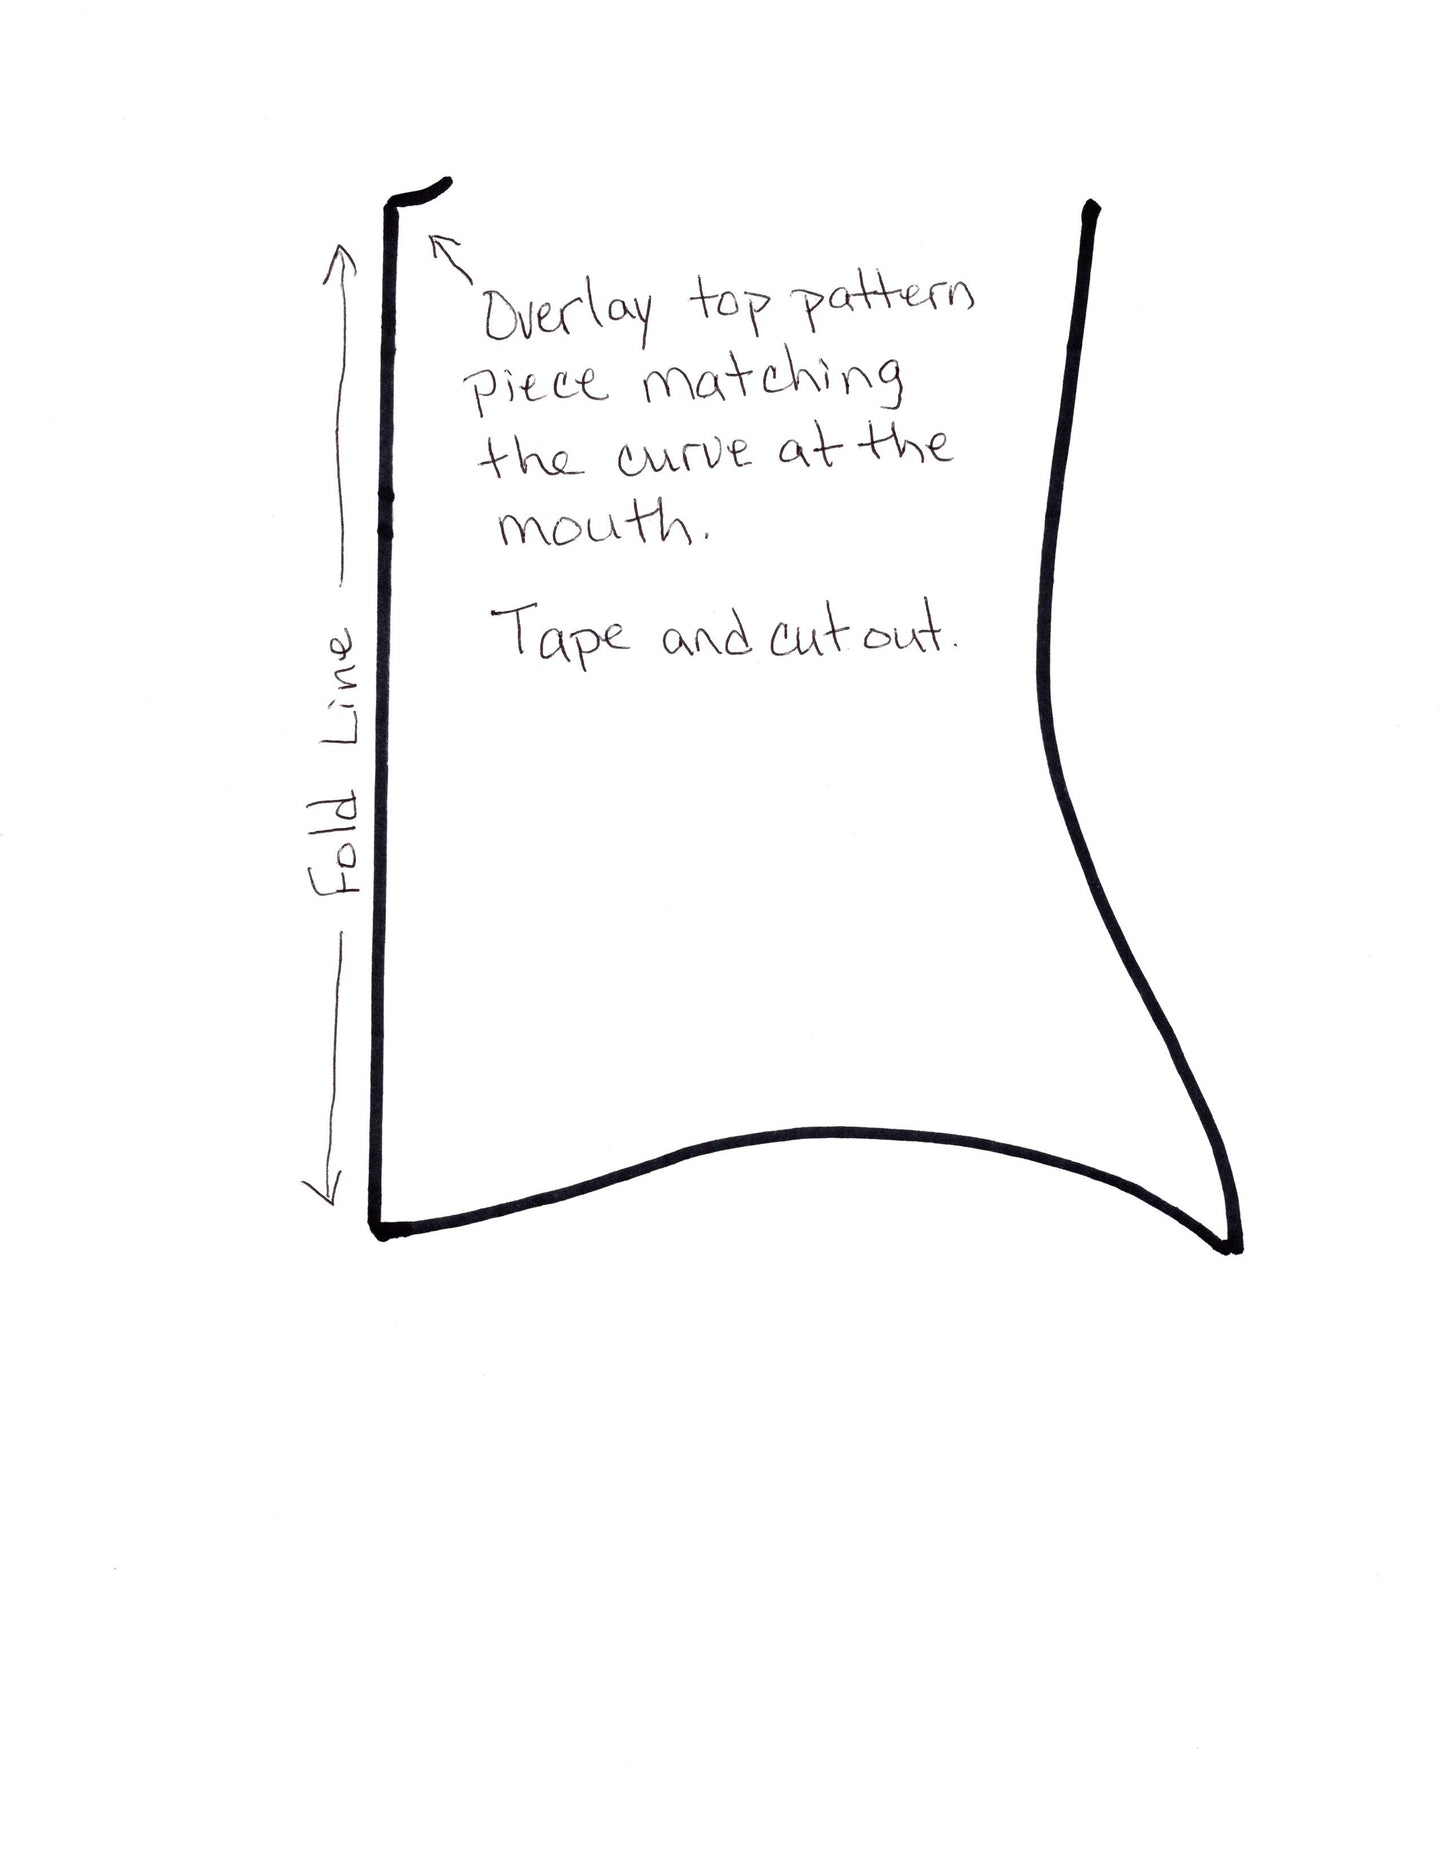 Overlay top pattern
piece matching
the curve at the
mouth.
Tape and cut out.
Fold Line